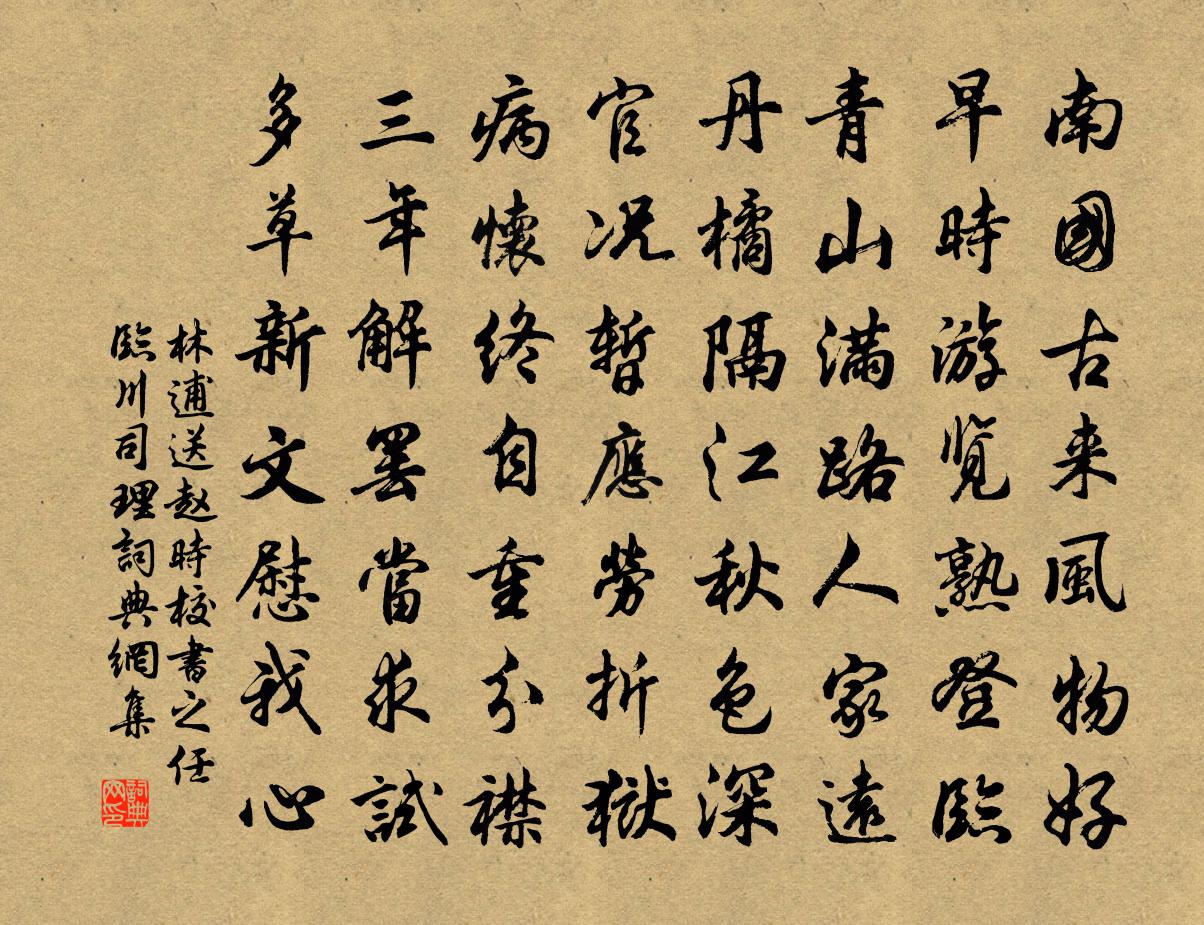 南國古来風物好
早時游览熟登臨
青山滿路人家遠
丹橘隔江秋色深
官况暫應勞折獄
病懷终自重分襟
三年解罢當求試
多草新文慰我心
林逋送赵時校書之任
臨川司理詞典網集
詞典网印